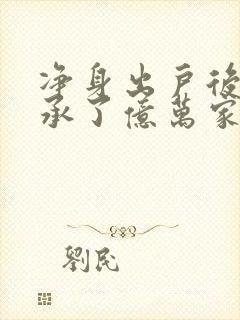 净身出戶後
承了億萬家
劉民